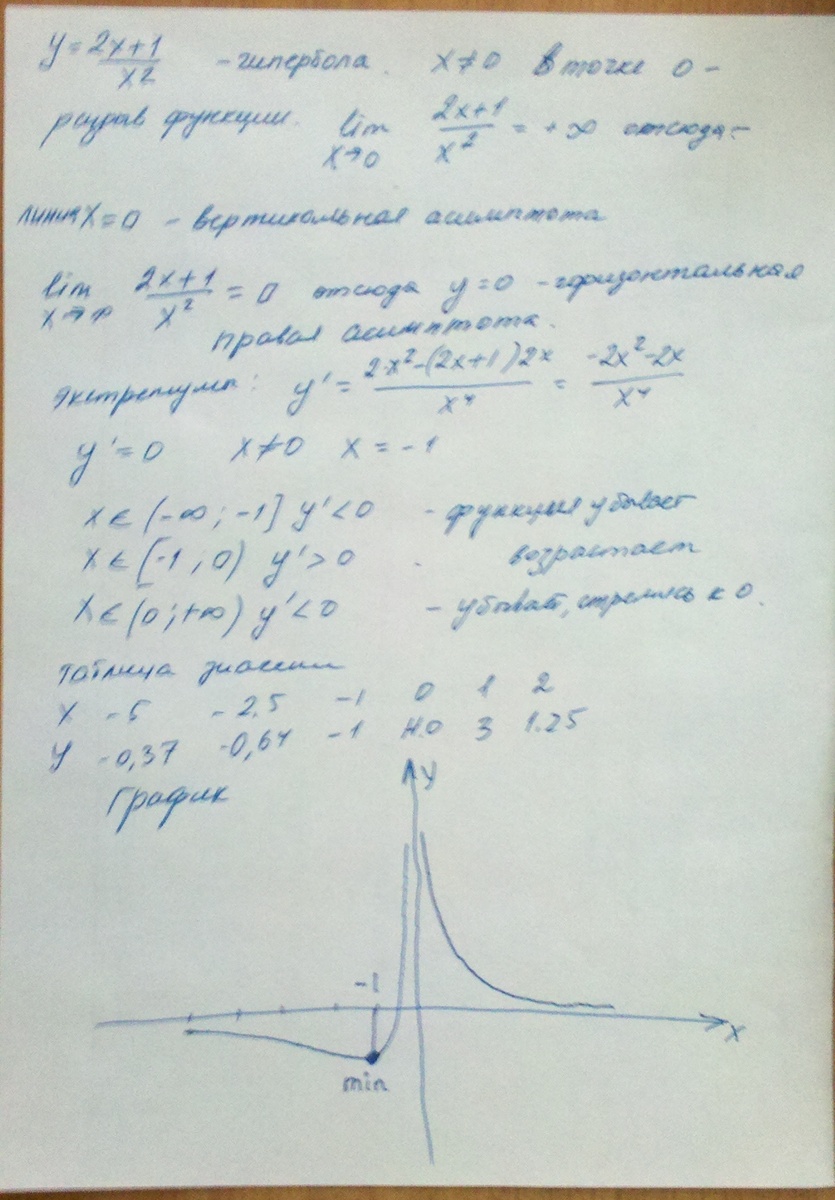 y = 2x+1/x² - гипербола. x≠0 В точке 0 -
разрыв функции. lim x→0 2x+1/x² = +∞ отсюда -
линия x=0 - вертикальная асимптота
lim x→∞ 2x+1/x² = 0 отсюда y=0 - горизонтальная
правая асимптота.
экстремумы: y' = 2·x²-(2x+1)2x/x⁴ = -2x²-2x/x⁴
y'=0 x≠0 x = -1
x∈(-∞; -1] y'<0 - функция убывает
x∈[-1; 0) y'>0 - возрастает
x∈(0; +∞) y'<0 - убывает, стремясь к 0.
Таблица
x -5 -2,5 -1 0 1 2
y -0,37 -0,64 -1 Н.О 3 1.25
График
y
-1
x
min